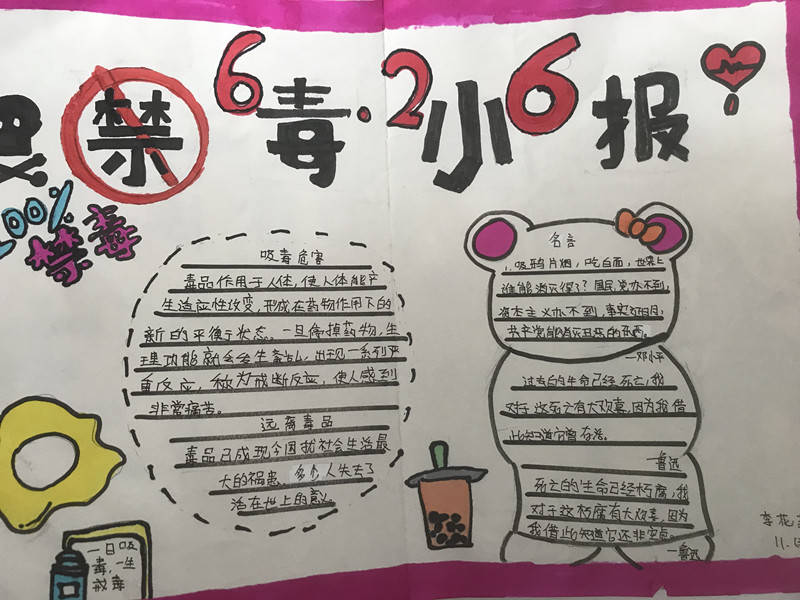 禁毒小报
6·26
100%
禁毒
吸毒危害
毒品作用于人体,使人体能产
生适应性改变,形成在药物作用下的
新的平衡状态。一旦停掉药物,生
理功能就会发生紊乱,出现一系列严
重反应,称为戒断反应,使人感到
非常痛苦。
远离毒品
毒品已成现今困扰社会生活最
大的祸患。多个人失去了
活在世上的意义。
一日吸
毒,一生
戒毒
名言
1.吸鸦片烟,吃白面,世界上
谁能消灭得了?国民党办不到,
资本主义办不到,事实证明,
共产党能够消灭丑恶的东西。
—邓小平
过去的生命已经死亡,我
对于这死亡有大欢喜,因为我借
此知道它曾存活。
—鲁迅
死亡的生命已经朽腐,我
对于这朽腐有大欢喜,因为
我借此知道它还非空虚。
—鲁迅
李花
11.